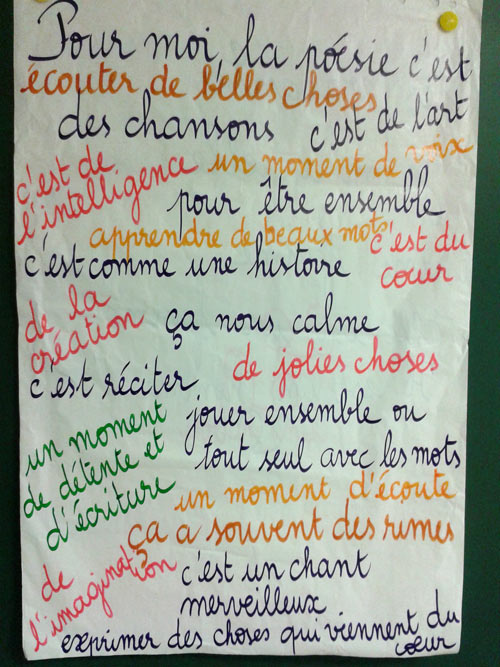 Pour moi, la poésie c'est
écouter de belles choses
des chansons c'est de l'art
c'est de
l'intelligence
un moment de voix
pour être ensemble
apprendre de beaux mots
c'est du
cœur
c'est comme une histoire
de la
création
ça nous calme
de jolies choses
c'est réciter
un moment
de détente et
d'écriture
jouer ensemble ou
tout seul avec les mots
un moment d'écoute
ça a souvent des rimes
de
l'imagination
c'est un chant
merveilleux
exprimer des choses qui viennent du
cœur